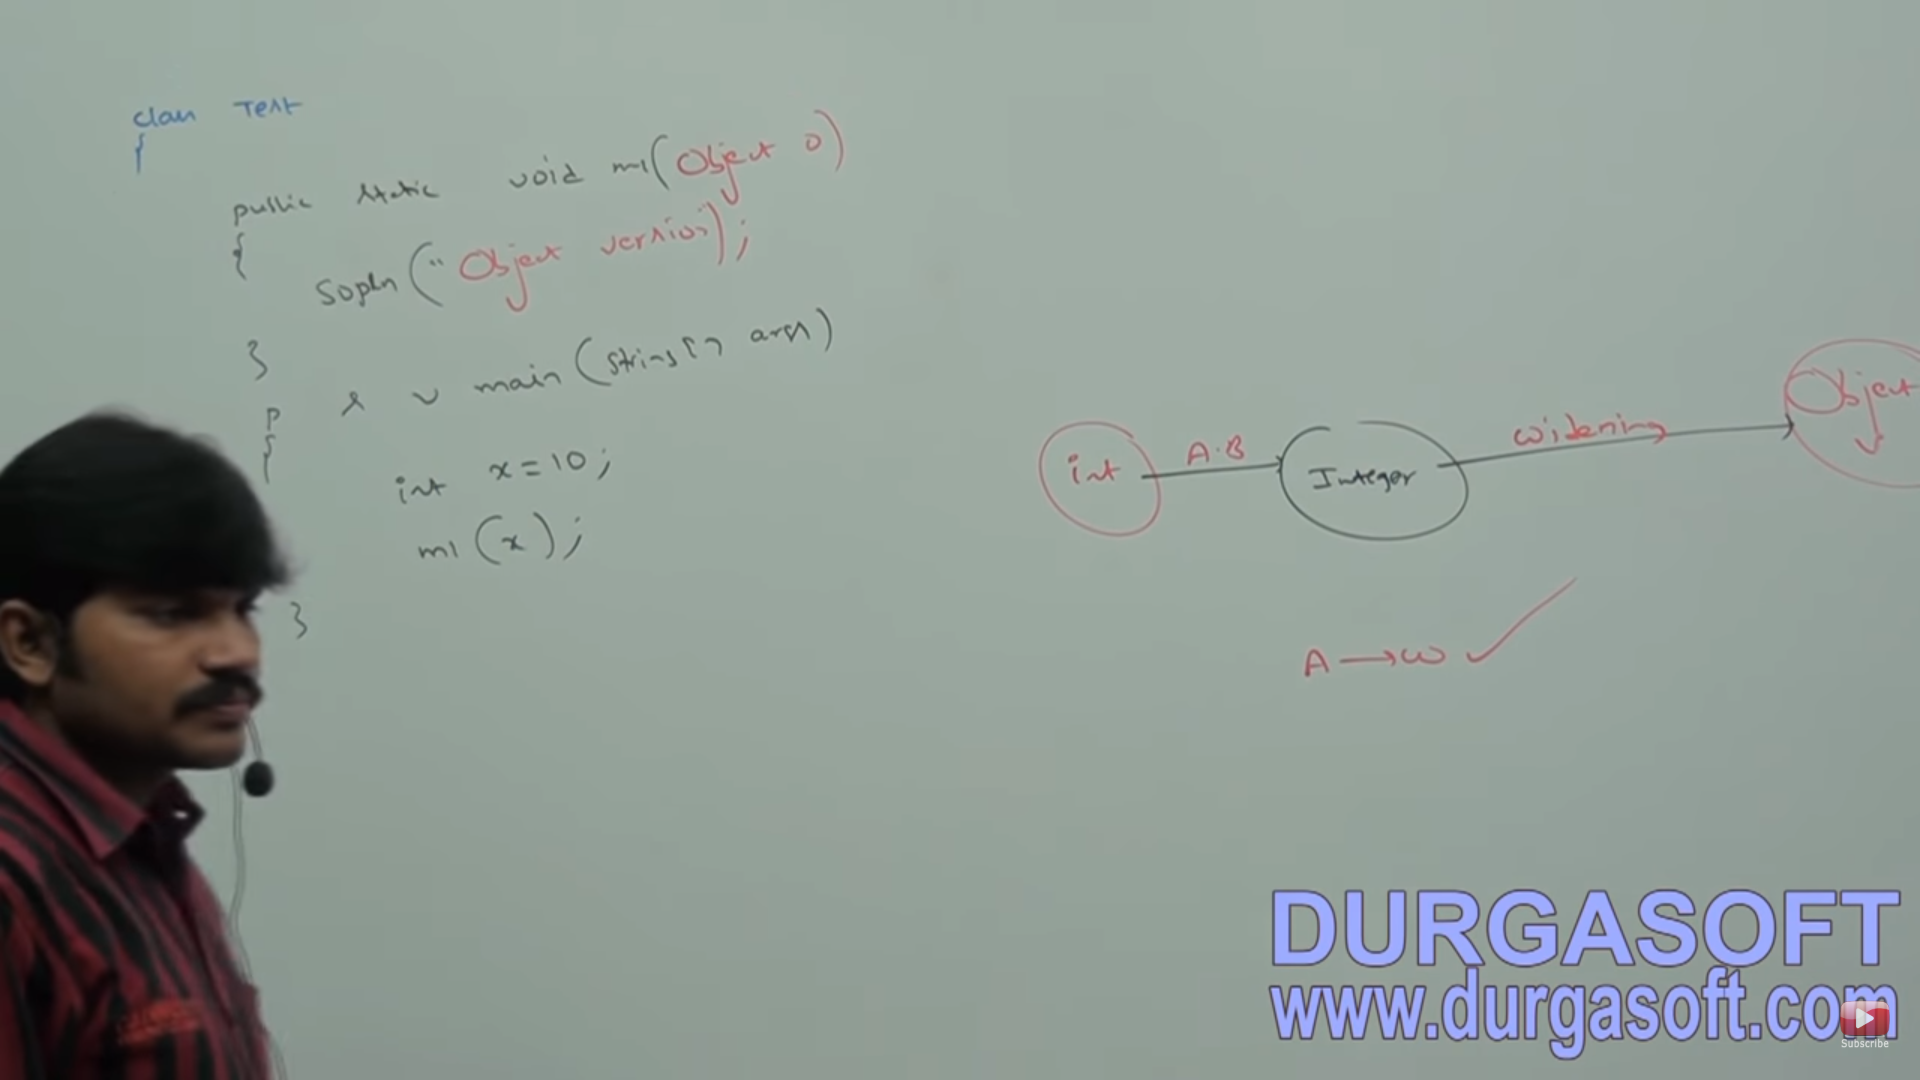 class Test
{
public static void m1(Object o)
{
Sopln("Object version);
}
p s v main(String[] args)
{
int x=10;
m1(x);
}
int A.B Integer widening Object
A→W ✓
DURGASOFT
www.durgasoft.com
Subscribe